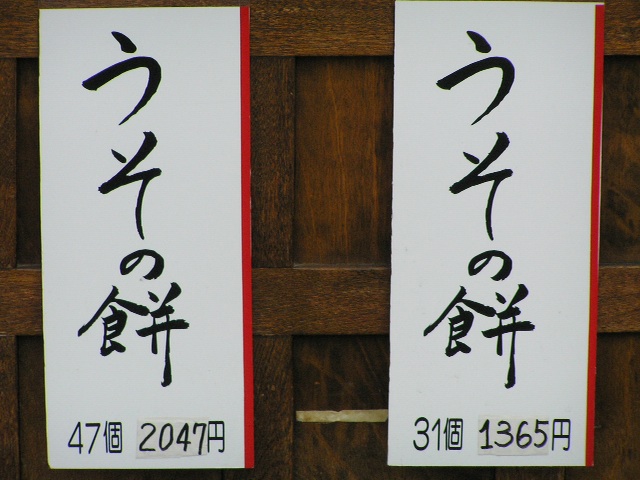 うその餅
47個 2047円
うその餅
31個 1365円